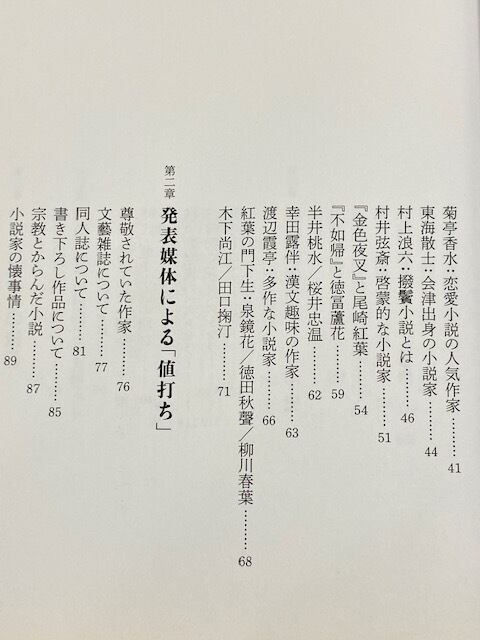 菊亭香水：恋愛小説の人気作家………41
東海散士：会津出身の小説家………44
村上浪六：撥鬢小説とは………46
村井弦斎：啓蒙的な小説家………51
『金色夜叉』と尾崎紅葉………54
『不如帰』と徳富蘆花………59
半井桃水／桜井忠温………62
幸田露伴：漢文趣味の作家………63
渡辺霞亭：多作な小説家………66
紅葉の門下生：泉鏡花／徳田秋聲／柳川春葉………68
木下尚江／田口掬汀………71
第二章 発表媒体による「値打ち」
尊敬されていた作家………76
文藝雑誌について………77
同人誌について………81
書き下ろし作品について………85
宗教とからんだ小説………87
小説家の懐事情………89